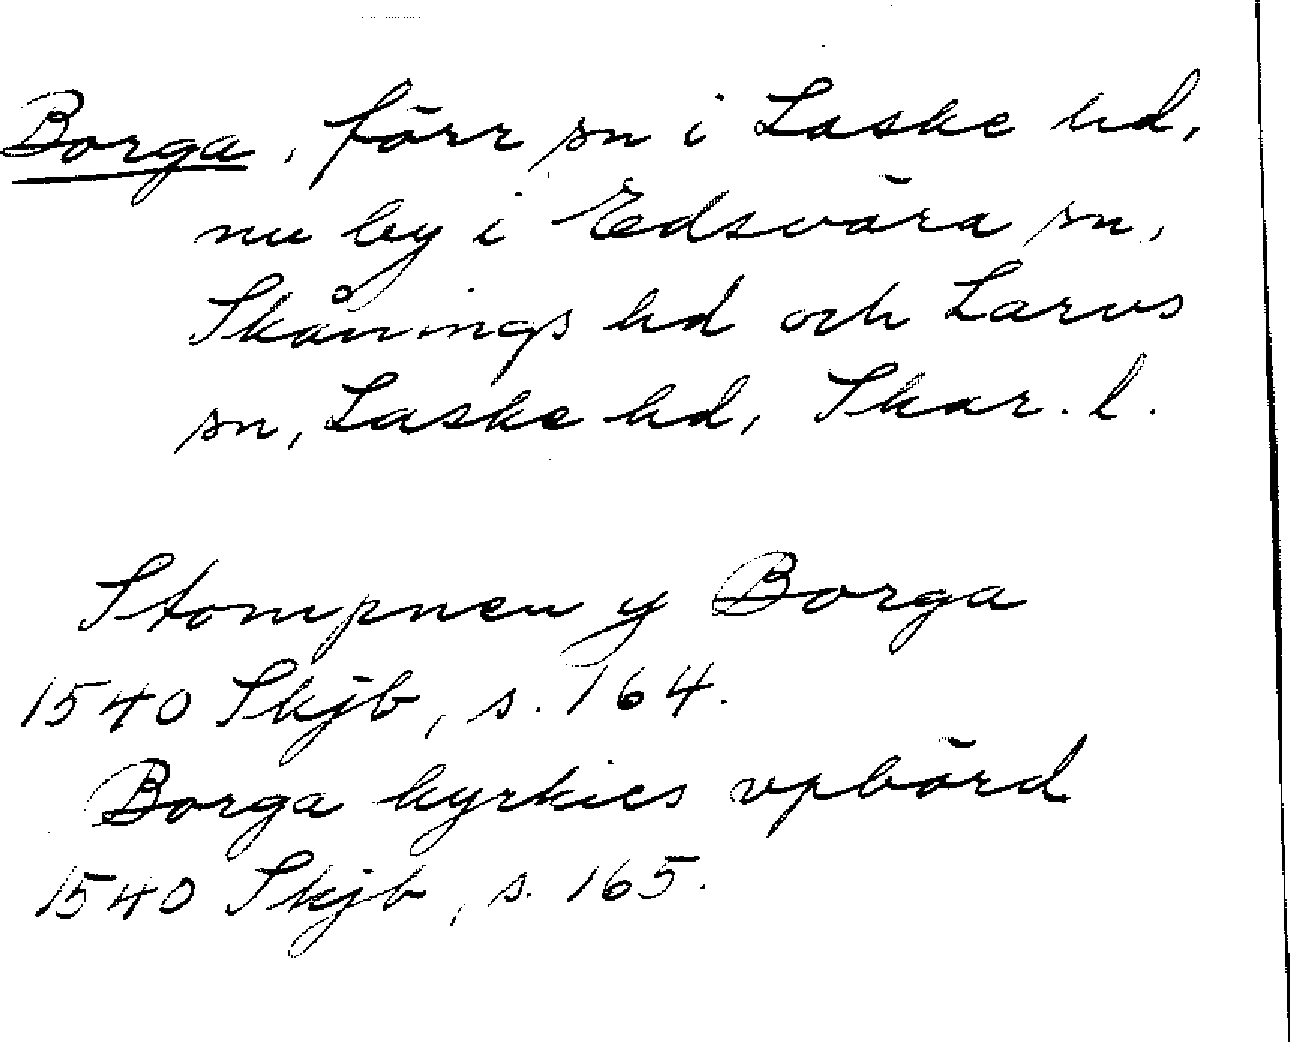 Borga, förr sn i Laske hd,
nu by i Edsvära sn,
Skånings hd och Larvs
sn, Laske hd, Skar. l.
Stompnen y Borga
1540 Skjb, s. 164.
Borga kyrkies vpbörd
1540 Skjb, s. 165.